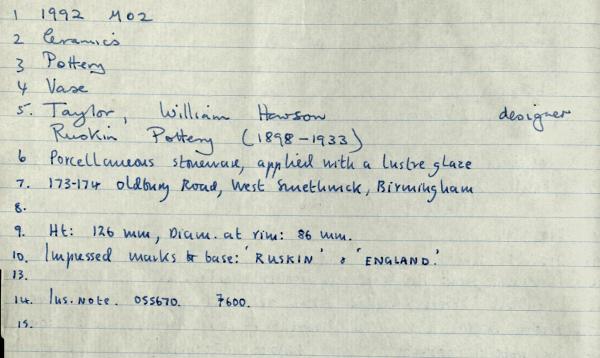 1 1992 M02
2 Ceramics
3 Pottery
4 Vase
5. Taylor, William Howson designer
Ruskin Pottery (1898-1933)
6 Porcellaneous stoneware, applied with a lustre glaze
7. 173-174 Oldbury Road, West Smethwick, Birmingham
8.
9. Ht: 126 mm, Diam. at rim: 86 mm.
10. Impressed marks to base: 'RUSKIN' & 'ENGLAND.'
13.
14. Ins. Note. 055670. 7600.
15.